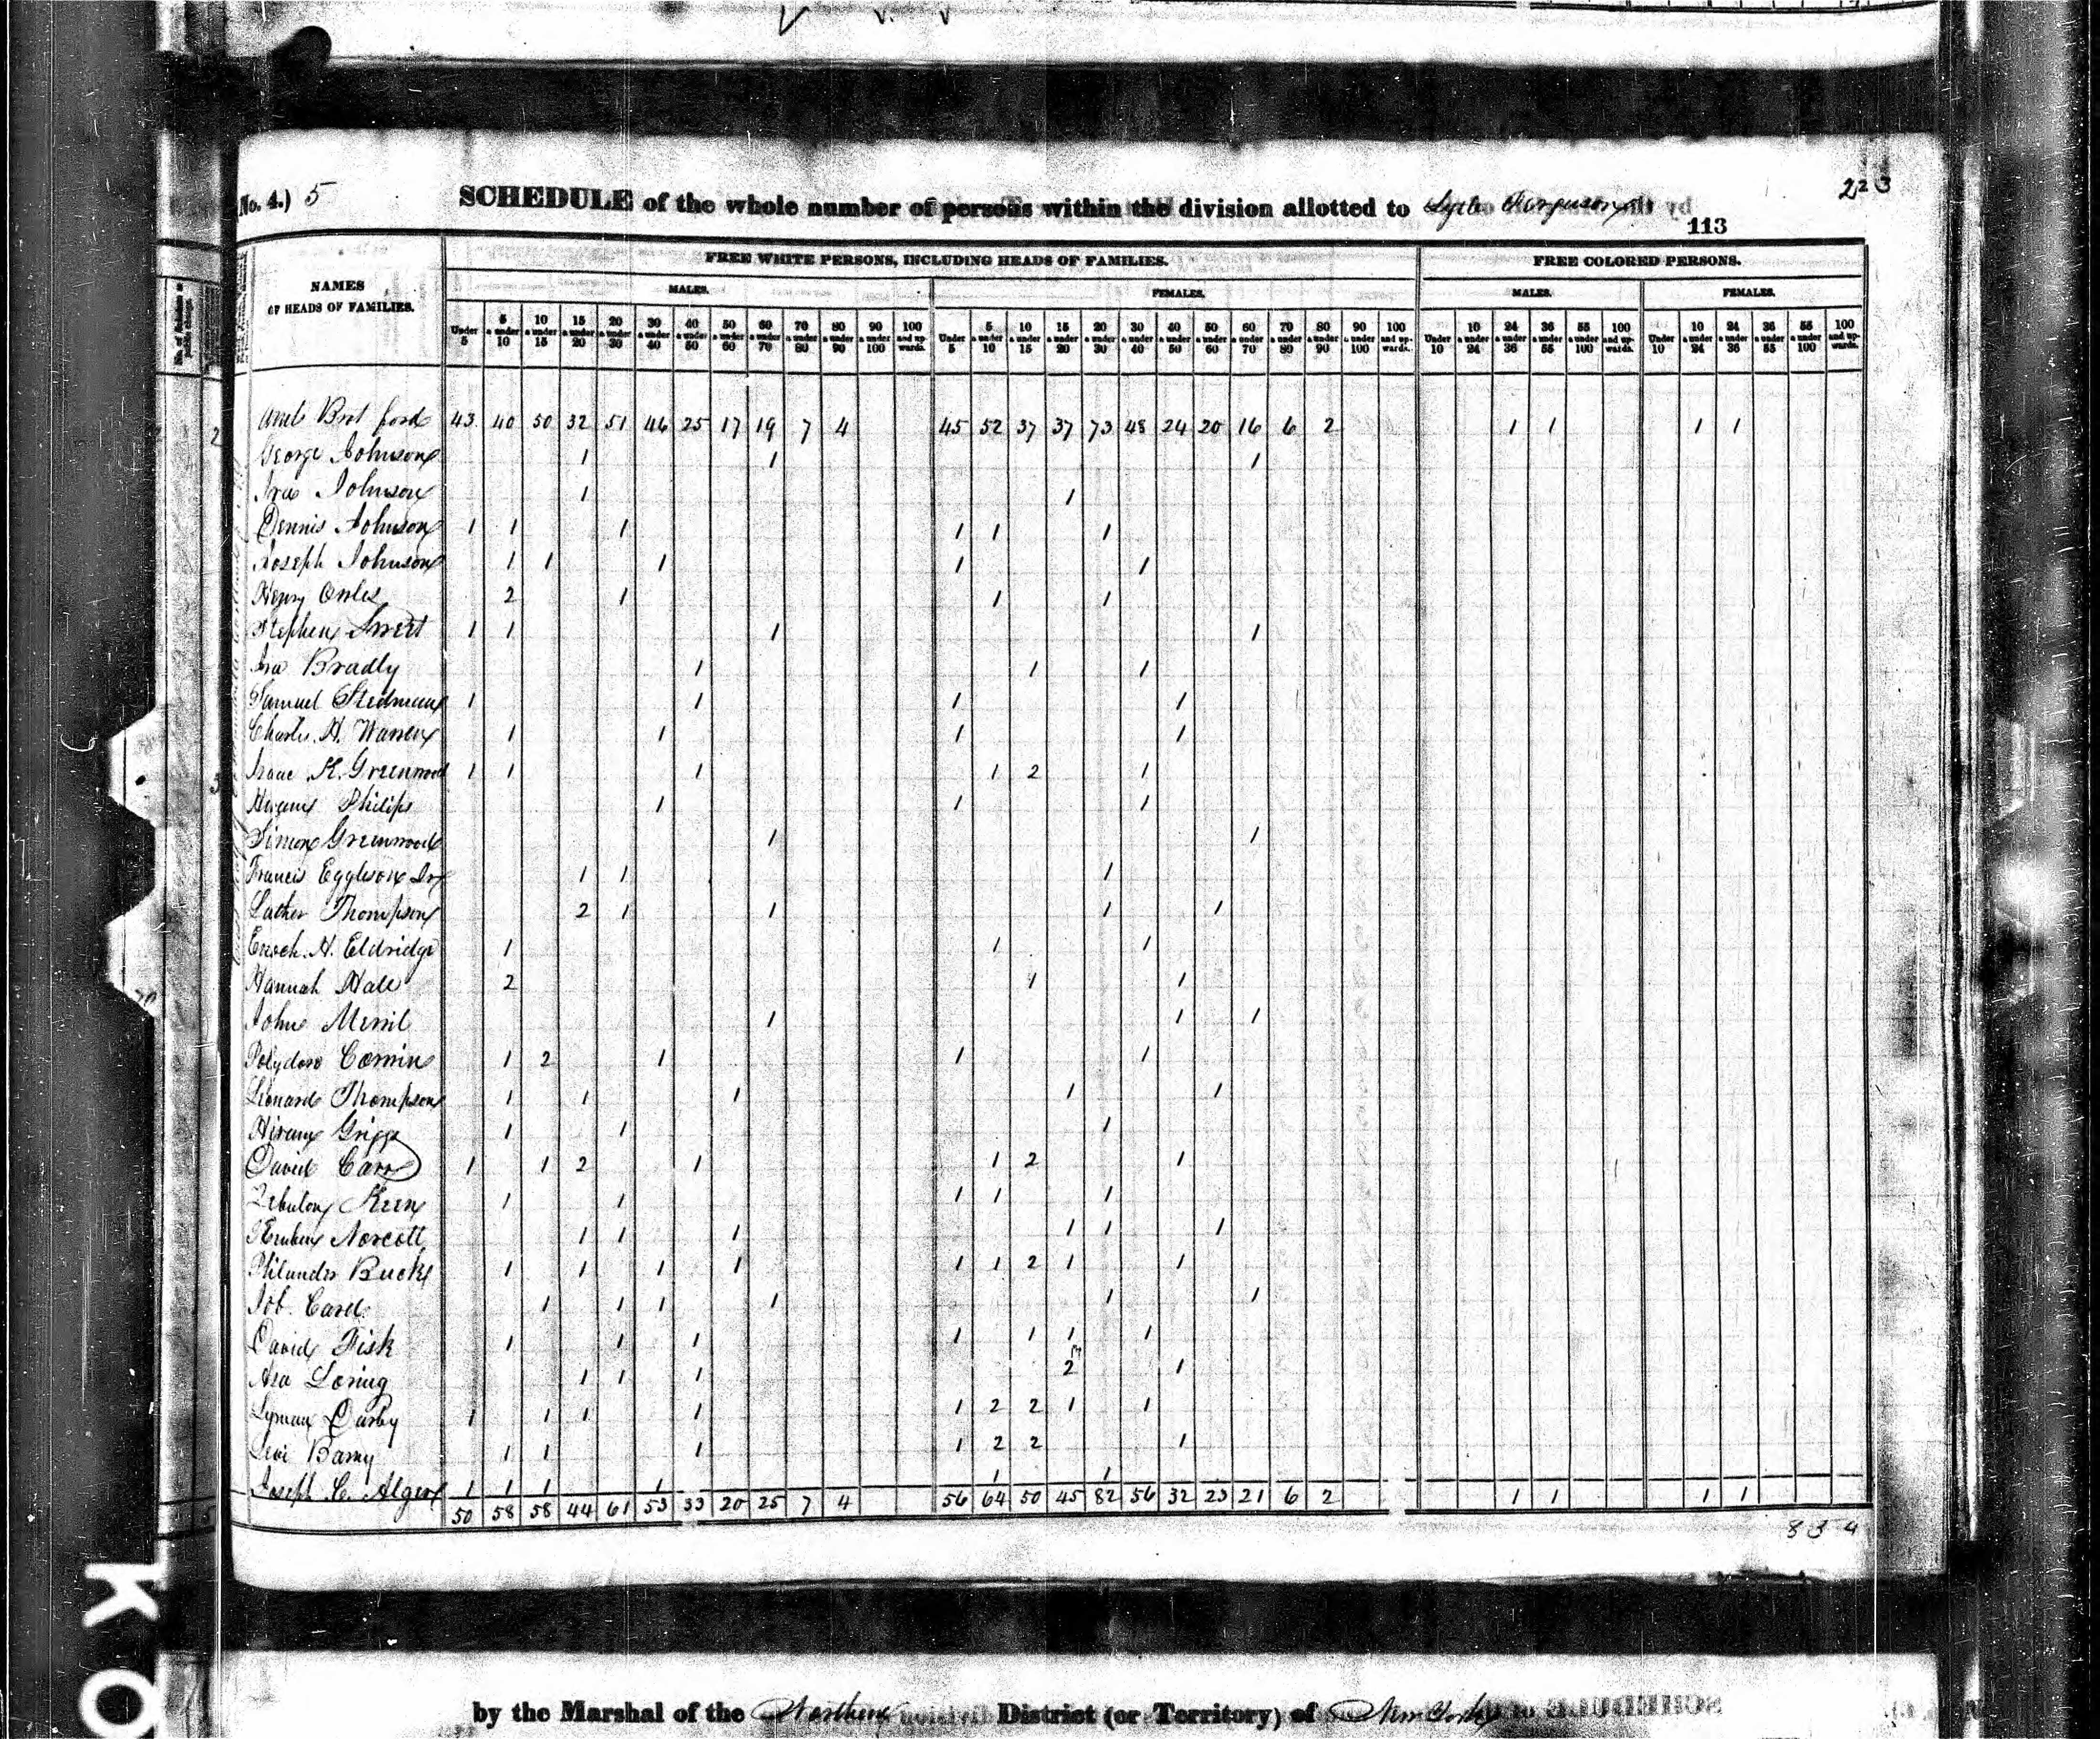 No. 4.) 5
SCHEDULE of the whole number of persons within the division allotted to Lyle Ferguson
223
113
NAMES OF HEADS OF FAMILIES.
FREE WHITE PERSONS, INCLUDING HEADS OF FAMILIES.
FREE COLORED PERSONS.
MALES. FEMALES. MALES. FEMALES.
Under 5 | 5 & under 10 | 10 & under 15 | 15 & under 20 | 20 & under 30 | 30 & under 40 | 40 & under 50 | 50 & under 60 | 60 & under 70 | 70 & under 80 | 80 & under 90 | 90 & under 100 | 100 and upwards. | Under 5 | 5 & under 10 | 10 & under 15 | 15 & under 20 | 20 & under 30 | 30 & under 40 | 40 & under 50 | 50 & under 60 | 60 & under 70 | 70 & under 80 | 80 & under 90 | 90 & under 100 | 100 and upwards. | Under 10 | 10 & under 24 | 24 & under 36 | 36 & under 55 | 55 & under 100 | 100 and upwards. | Under 10 | 10 & under 24 | 24 & under 36 | 36 & under 55 | 55 & under 100 | 100 and upwards.
Amt Brot ford 43 40 50 32 51 46 25 17 19 7 4 45 52 37 37 73 48 24 20 16 6 2 1 1 1 1
George Johnson 1 1 1
Ira Johnson 1 1
Dennis Johnson 1 1 1 1 1 1
Joseph Johnson 1 1 1 1 1
Henry 2 1 1 1
Stephen Sweet 1 1 1 1
Ira Bradly 1 1 1
Samuel Stedman 1 1 1 1
Charles H. Warren 1 1 1 1
Isaac K. Greenwood 1 1 1 1 2 1
Hiram Philips 1 1 1
Simon Greenwood 1 1
Francis Eggleson Jr 1 1 1
Luther Thompson 2 1 1 1 1
Enoch H. Eldridge 1 1 1
Hannah Hale 2 1 1
John Merril 1 1 1
Polydore Comin 1 2 1 1 1
Leonard Thompson 1 1 1 1 1
Hiram Griggs 1 1 1
David Carr 1 1 2 1 1 2 1
Zebulon Keen 1 1 1 1 1
Reuben Norcott 1 1 1 1 1 1
Philander Buck 1 1 1 1 1 1 2 1 1
Job Card 1 1 1 1 1 1
David Fisk 1 1 1 1 1 1 1
Asa Loring 1 1 1 2 1
Lyman Darby 1 1 1 1 1 2 2 1 1
Levi Barny 1 1 1 1 2 2 1
Joseph C. Alger 1 1 1 1 1 1
50 58 58 44 61 53 33 20 25 7 4 56 64 50 45 82 56 32 23 21 6 2 1 1 1 1
834
K O
by the Marshal of the Northern District (or Territory) of New York